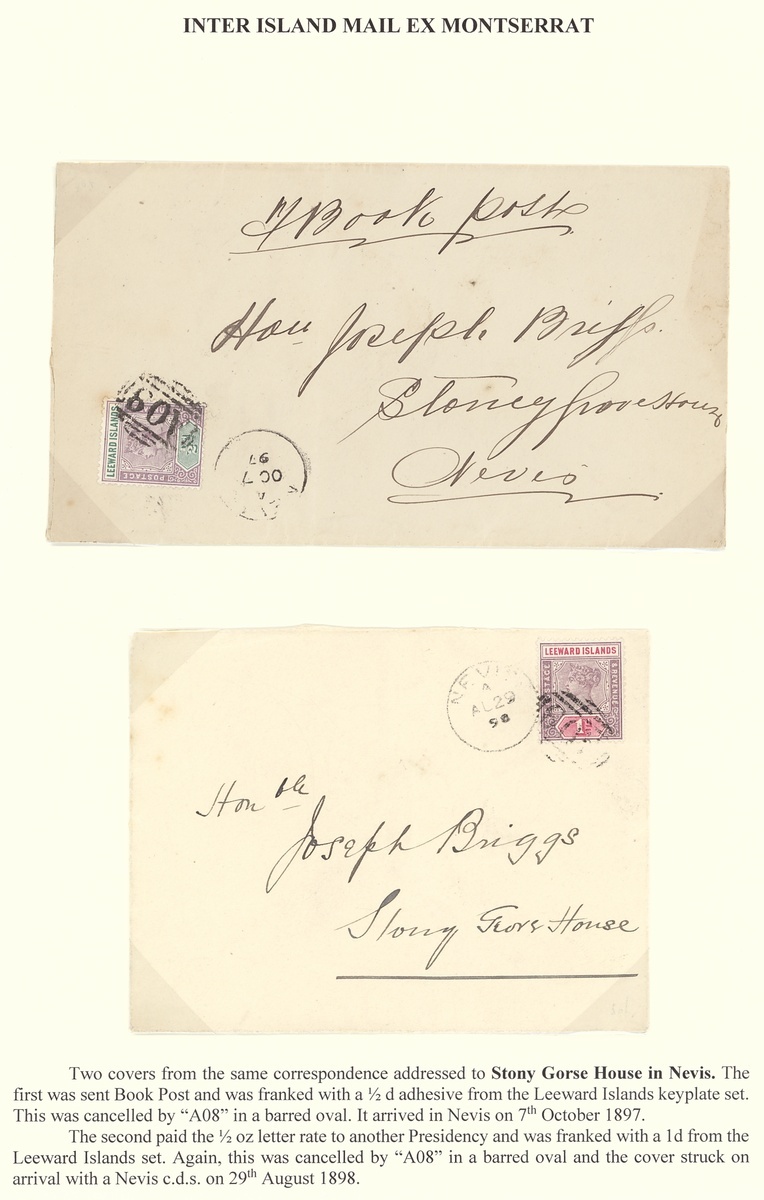 INTER ISLAND MAIL EX MONTSERRAT
Book post
Hon Joseph Briggs.
Stoney Grove House
Nevis
LEEWARD ISLANDS
POSTAGE
A08
A
OC 7
97
NEVIS
A
AU 29
98
LEEWARD ISLANDS
POSTAGE
& REVENUE
Honble
Joseph Briggs
Stony Grove House
Two covers from the same correspondence addressed to Stony Gorse House in Nevis. The
first was sent Book Post and was franked with a ½ d adhesive from the Leeward Islands keyplate set.
This was cancelled by “A08” in a barred oval. It arrived in Nevis on 7th October 1897.
The second paid the ½ oz letter rate to another Presidency and was franked with a 1d from the
Leeward Islands set. Again, this was cancelled by “A08” in a barred oval and the cover struck on
arrival with a Nevis c.d.s. on 29th August 1898.